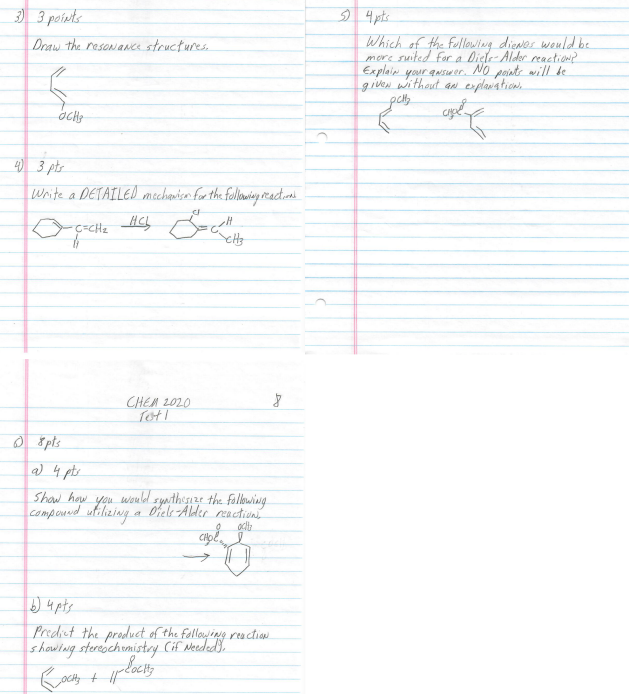 3) 3 points
Draw the resonance structures.
OCH3
4) 3 pts
Write a DETAILED mechanism for the following reaction.
C=CH2
H
HCl
Cl
=C
H
CH3
5) 4 pts
Which of the following dienes would be
more suited for a Diels-Alder reaction?
Explain your answer. NO points will be
given without an explanation.
OCH3
O
CHEM 2020
Test 1
8
6) 8 pts
a) 4 pts
Show how you would synthesize the following
compound utilizing a Diels-Alder reaction.
O
OCH3
b) 4 pts
Predict the product of the following reaction
showing stereochemistry (if needed).
OCH3 +
O
COCH3